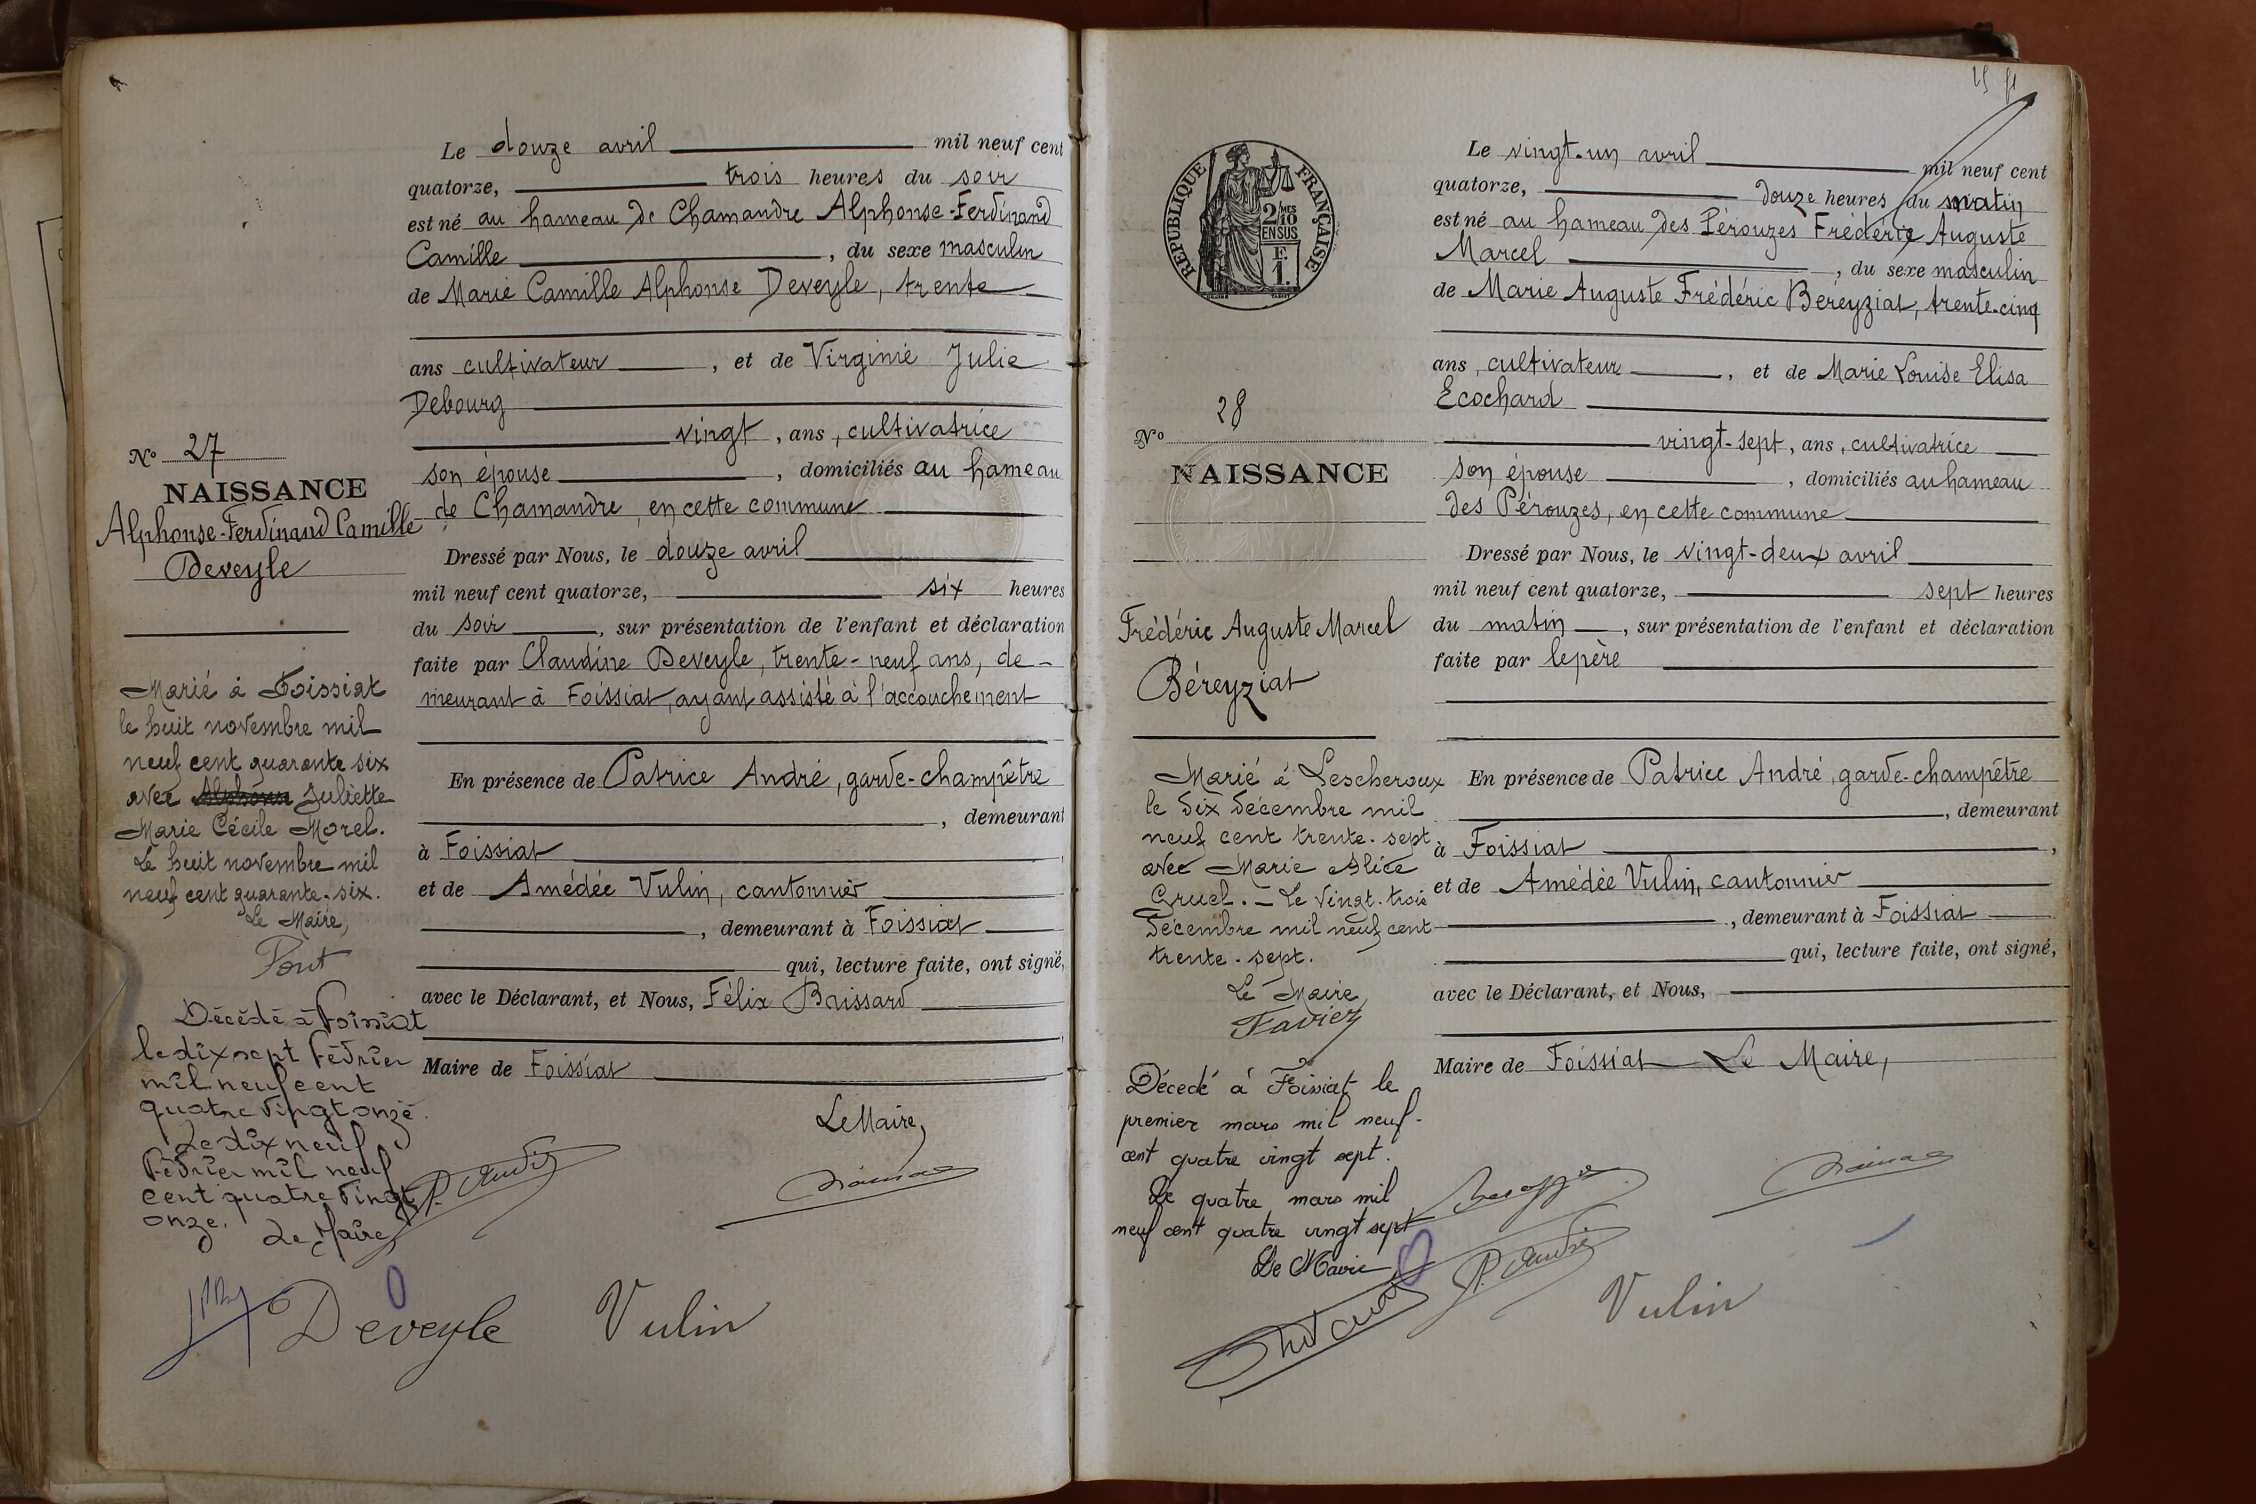 Le douze avril mil neuf cent
quatorze, trois heures du soir
est né au hameau de Chamandre Alphonse-Ferdinand
Camille, du sexe masculin
de Marie Camille Alphonse Deveyle, trente
ans cultivateur, et de Virginie Julie
Debourg
vingt, ans, cultivatrice
son épouse, domiciliés au hameau
de Chamandre, en cette commune
Dressé par Nous, le douze avril
mil neuf cent quatorze, six heures
du soir, sur présentation de l'enfant et déclaration
faite par Claudine Deveyle, trente-neuf ans, de-
meurant à Foissiat, ayant assisté à l'accouchement
En présence de Patrice André, garde-champêtre
, demeurant
à Foissiat,
et de Amédée Vulin, cantonnier
, demeurant à Foissiat
qui, lecture faite, ont signé,
avec le Déclarant, et Nous, Félix Brissard
Maire de Foissiat
Le Maire,
P. André
Deveyle
Vulin
No 27
NAISSANCE
Alphonse-Ferdinand Camille
Deveyle
Marié à Foissiat
le huit novembre mil
neuf cent quarante six
avec Alphonse Juliette
Marie Cécile Morel.
Le huit novembre mil
neuf cent quarante-six.
Le Maire,
Pont
Décédé à Foissiat
le dix sept Février
mil neuf cent
quatre vingt onze.
Le dix neuf
Février mil neuf
cent quatre vingt
onze.
Le Maire,
RÉPUBLIQUE FRANÇAISE
2/10 MES
EN SUS
F.
1.
Le vingt-un avril mil neuf cent
quatorze, douze heures du matin
est né au hameau des Pérouzes Frédéric Auguste
Marcel, du sexe masculin
de Marie Auguste Frédéric Béreyziat, trente-cinq
ans, cultivateur, et de Marie Louise Elisa
Ecochard
vingt-sept, ans, cultivatrice
son épouse, domiciliés au hameau
des Pérouzes, en cette commune
Dressé par Nous, le vingt-deux avril
mil neuf cent quatorze, sept heures
du matin, sur présentation de l'enfant et déclaration
faite par le père
En présence de Patrice André, garde-champêtre
, demeurant
à Foissiat,
et de Amédée Vulin, cantonnier
, demeurant à Foissiat
qui, lecture faite, ont signé,
avec le Déclarant, et Nous,
Maire de Foissiat Le Maire,
P. André
Vulin
No 28
NAISSANCE
Frédéric Auguste Marcel
Béreyziat
Marié à Lescheroux
le dix décembre mil
neuf cent trente-sept
avec Marie Alice
Gruel. - Le vingt-trois
décembre mil neuf cent
trente-sept.
Le Maire,
Favier
Décedé à Foissiat le
premier mars mil neuf-
cent quatre vingt sept.
Le quatre mars mil
neuf cent quatre vingt sept
Le Maire